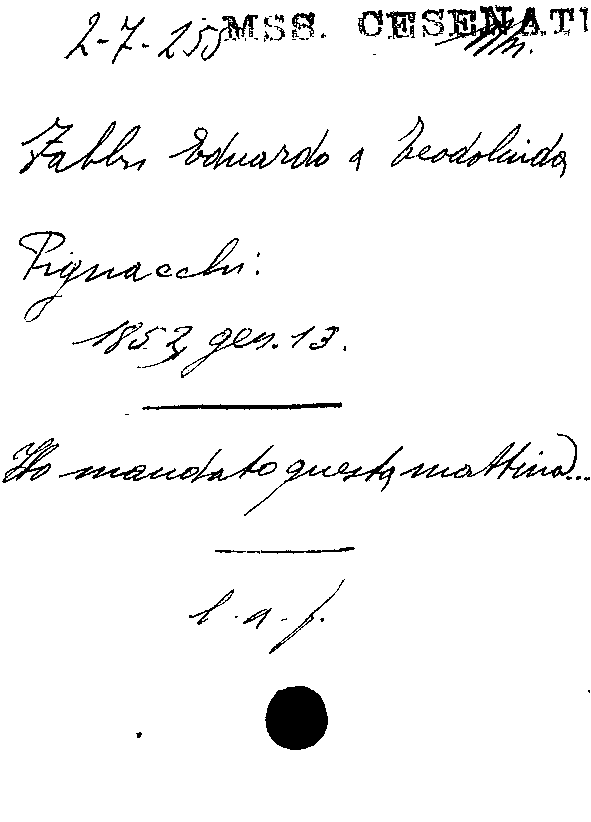 2-7-255 MSS. CESENATI
Fabbri Eduardo a Teodolinda
Pignocchi:
1853, gen. 13.
Ho mandato questa mattina...
l. a. f.